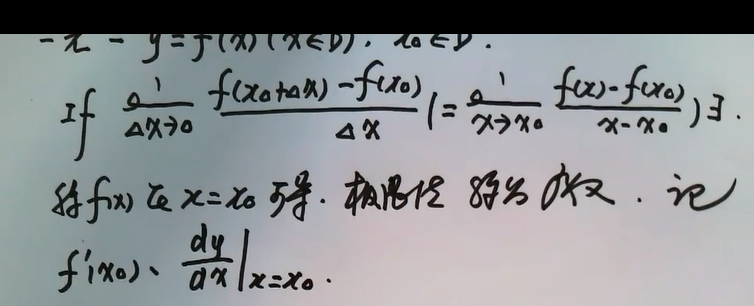 - 次 - y=f(x)(x∈D), x₀∈D.
If lim Δx→0 f(x₀+Δx)-f(x₀) / Δx (= lim x→x₀ f(x)-f(x₀) / x-x₀) ∃.
称f(x)在x=x₀可导. 极限值 称为 导数. 记
f'(x₀)、dy/dx|x=x₀.